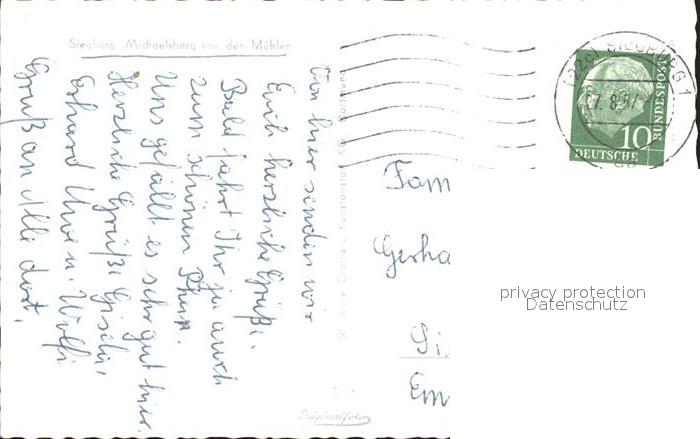 Siegburg Michaelsberg von den Mühlen
Von hier senden wir
Euch herzliche Grüße.
Bald fahrt Ihr ja auch
zum schönen Rhein.
Uns gefällt es sehr gut hier.
Herzliche Grüße Gisela,
Erhard Uwe u. Wolfi
Gruß an Alle dort.
Originalfoto
Fam
Gerha
Si
Em
SIEGBURG 1
7.8.57
10
DEUTSCHE
BUNDESPOST
privacy protection
Datenschutz